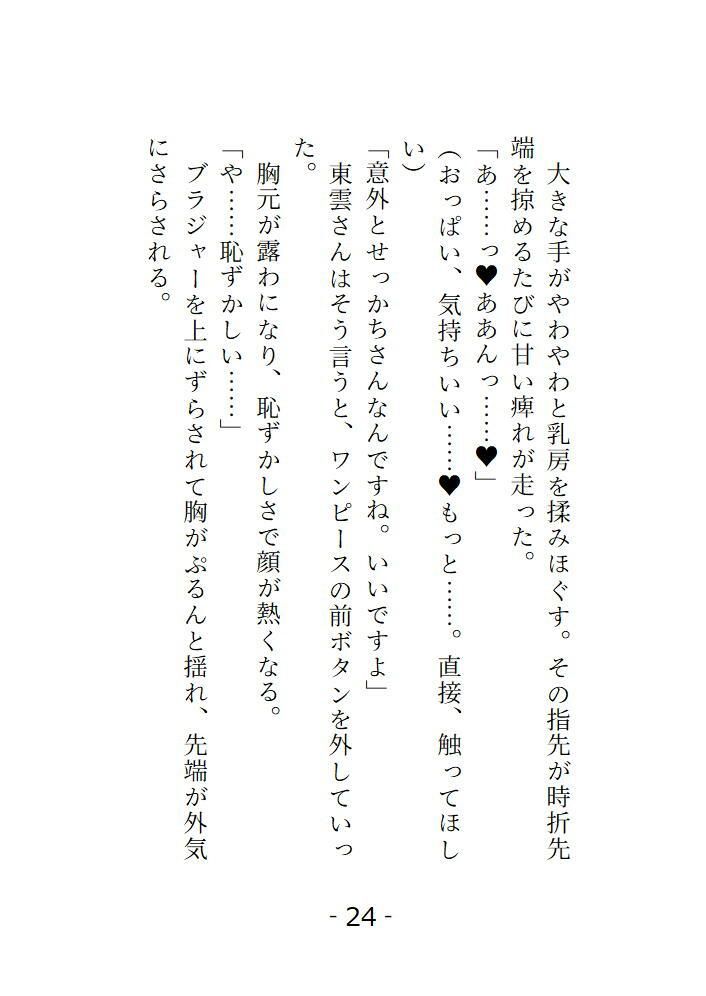 大きな手がやわやわと乳房を揉みほぐす。その指先が時折先
端を掠めるたびに甘い痺れが走った。
「あ……っ♥ああんっ……♥」
(おっぱい、気持ちいい……♥もっと……。直接、触ってほし
い)
「意外とせっかちさんなんですね。いいですよ」
東雲さんはそう言うと、ワンピースの前ボタンを外していっ
た。
胸元が露わになり、恥ずかしさで顔が熱くなる。
「や……恥ずかしい……」
ブラジャーを上にずらされて胸がぷるんと揺れ、先端が外気
にさらされる。
- 24 -